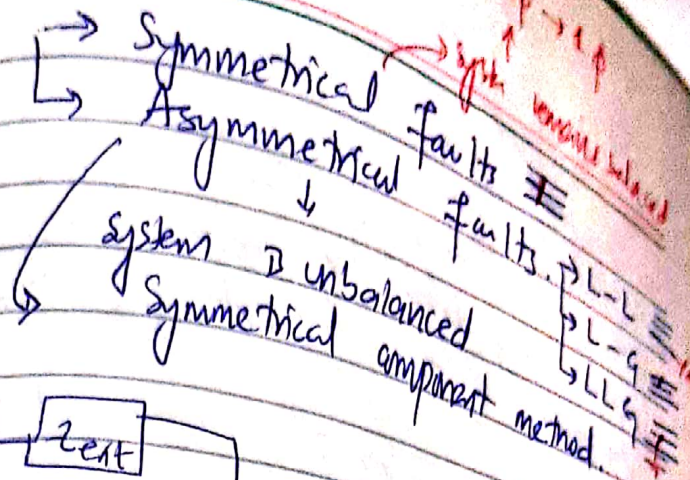 → Symmetrical faults → system remains balanced
→ Asymmetrical faults. → L-L
→ L-G
→ LLG
↓
System is unbalanced
→ Symmetrical component method.
Zext